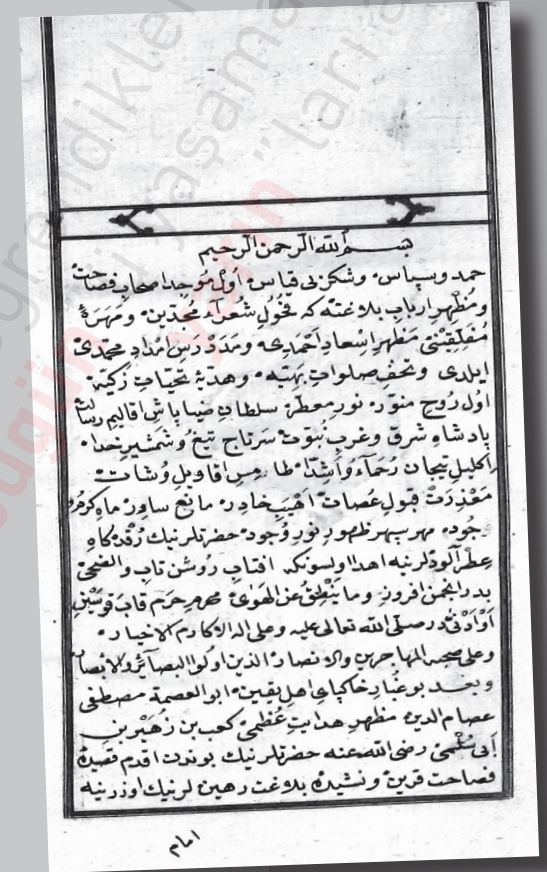 بسم الله الرحمن الرحيم
حمد وسپاس وشكر بی قیاس اول موجد اصحاب فصاحت
ومظهر ارباب بلاغته كه فحول شعراء مجدین ومهرهٔ
مفلقینی مظهر اسعاد احمدی ومدد رس امداد محمدی
ایلدی وتحف صلوات بهیه وهدیهٔ تحیات زكیه
اول روح منور نور معطر سلطان ضیا پاش اقالیم رسالت
پادشاه شرق وغرب نبوت سرتاج تیغ وشمشیر خدا
اكلیل تیجان رحماء واشداء اقاویل وشات
معذرت قبول عصات
جوده مهر سپهر ظهور نور وجود حضرتلرینك
عطر آلودلرینه اهدا اولسونكه افتاب روشن تاب والضحی
بدر انجمن افروز وما ینطق عن الهوی محرم حرم قاب قوسین
أو أدنی در صلی الله تعالی علیه وعلی اله الاكارم الاخیار
وعلی صحبه المهاجرین والانصار الذین اولوا البصائر والابصار
وبعد بو غبار خاكپای اهل یقین ابو العصمة مصطفی
عصام الدین مظهر هدایت عظمی كعب بن زهیر بن
أبی سلمی رضی الله عنه حضرتلرینك بو ندرت اقدم قصیدهٔ
فصاحت قرین ونشیدهٔ بلاغت رهین لرینك اوزرینه
امام